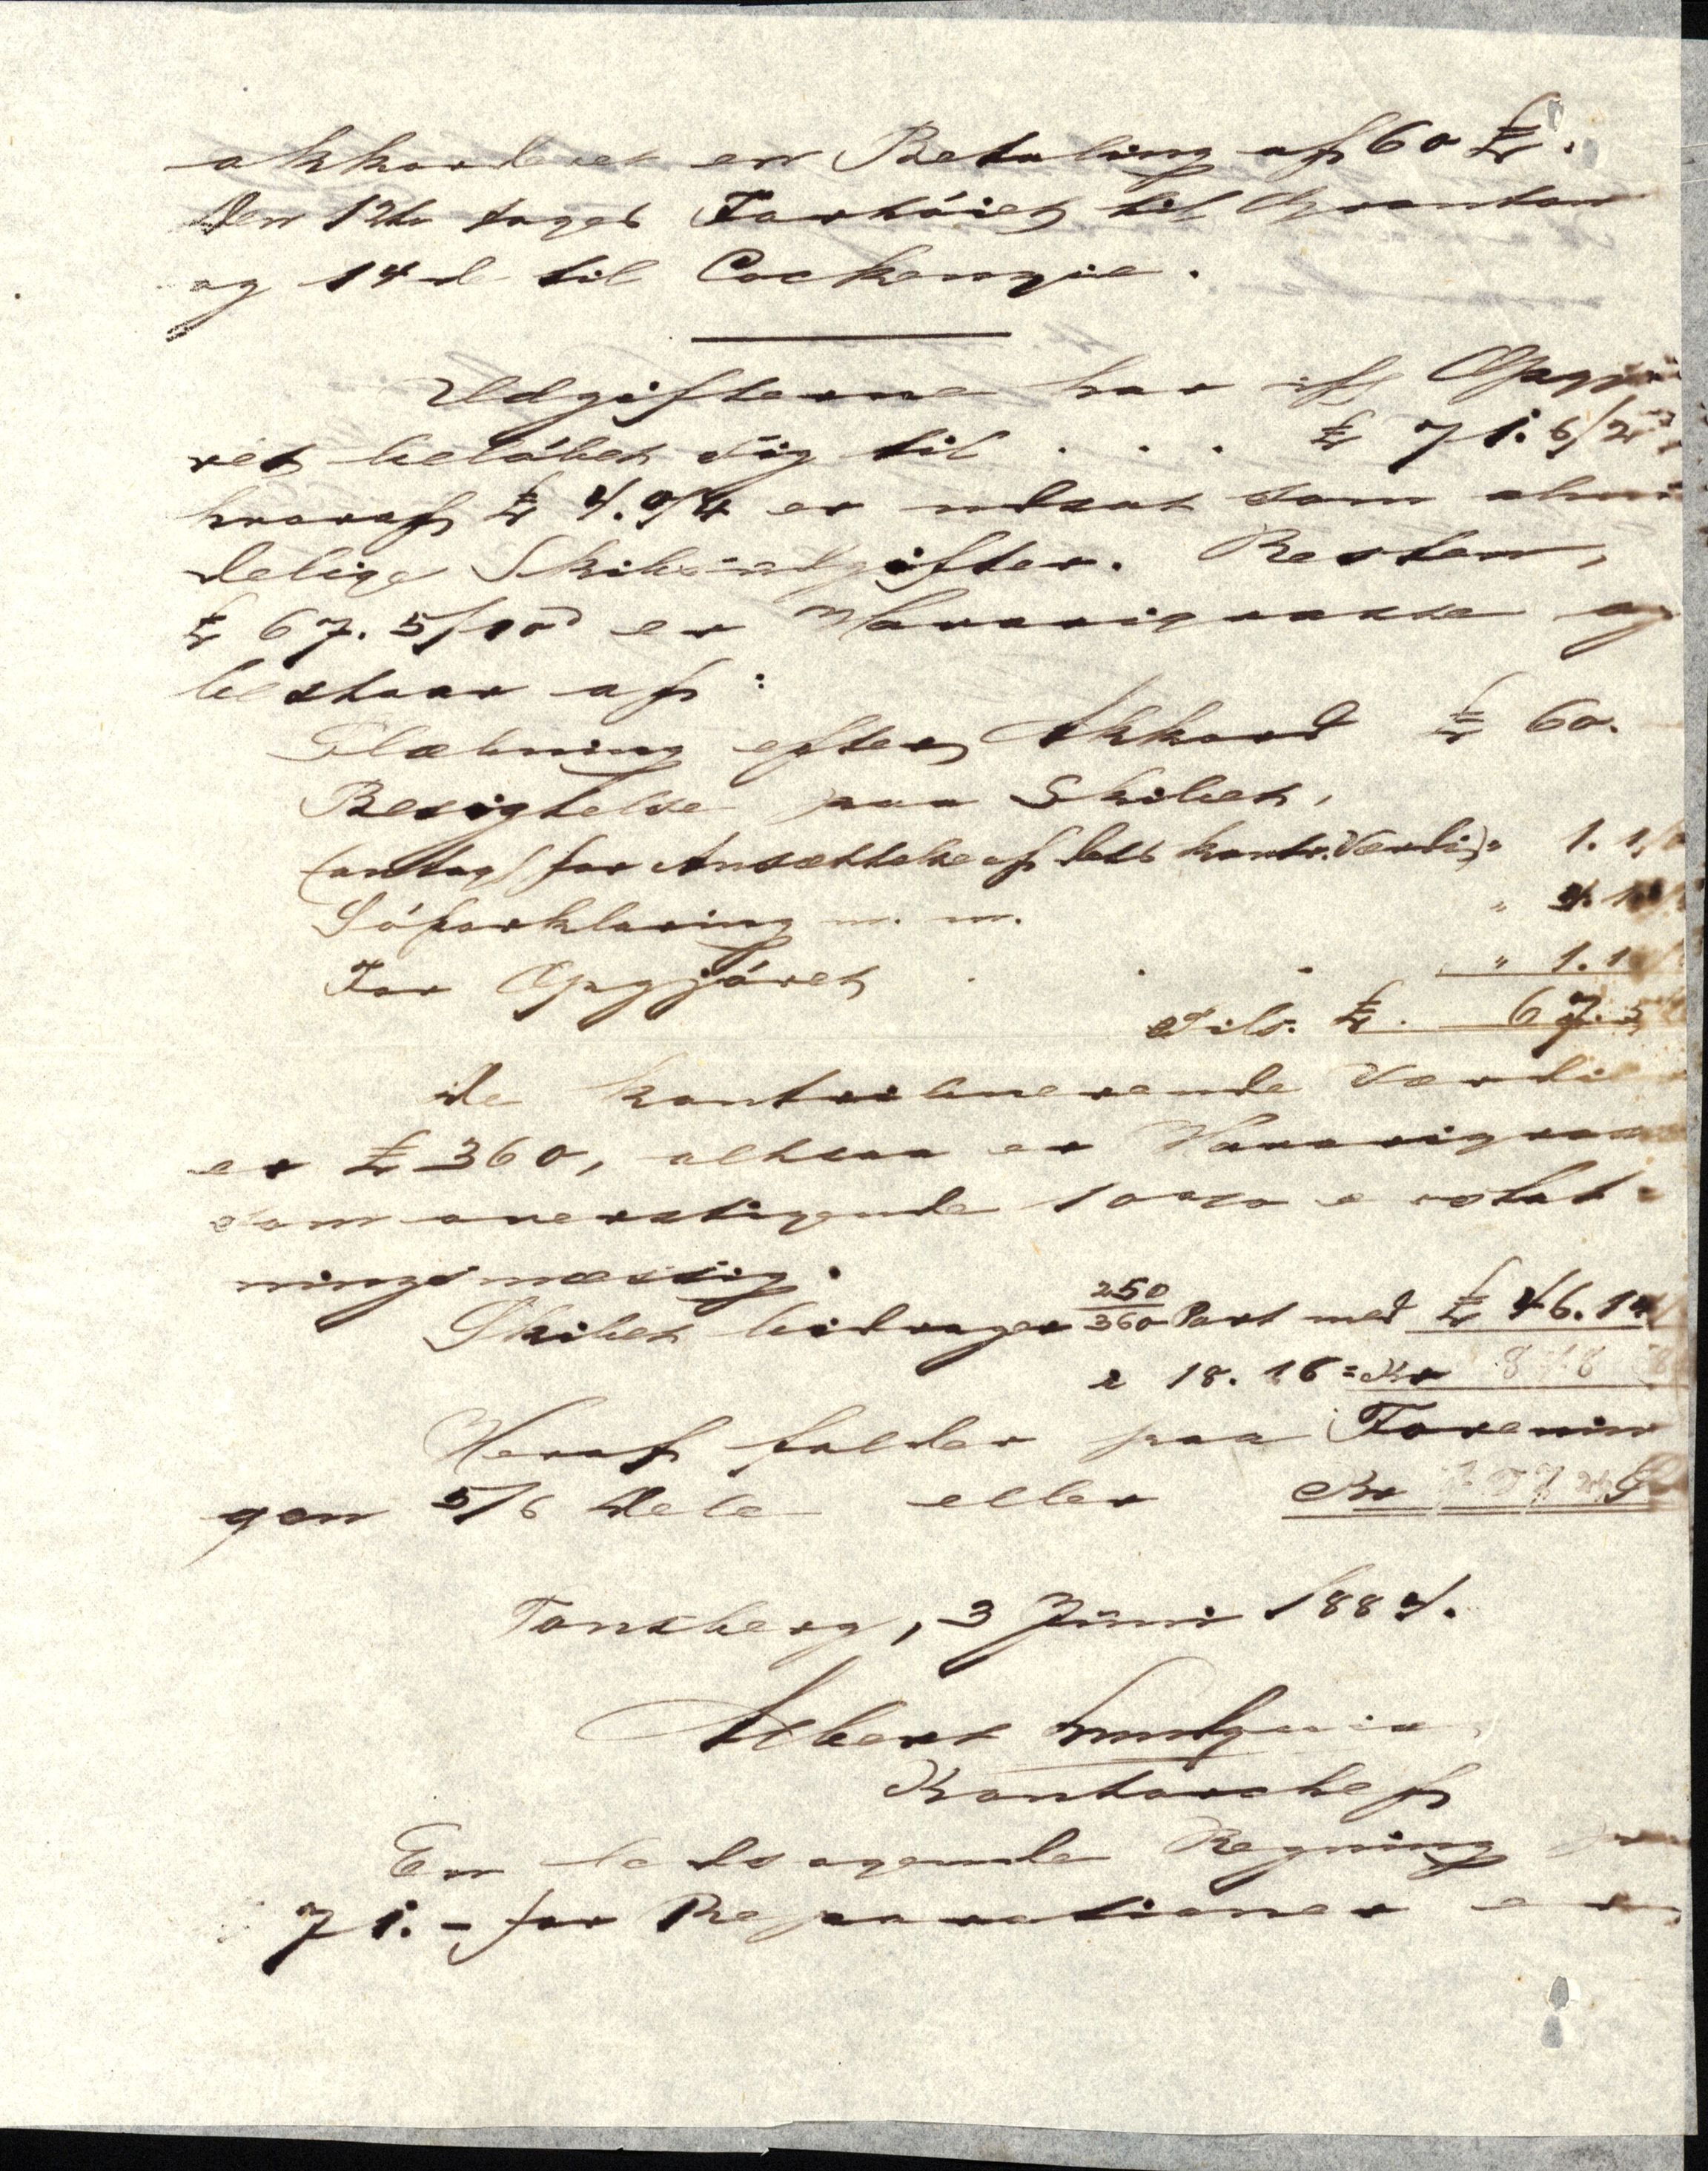 akkorderet en Betaling af 60 £.
Den 12te toges Fartöiet til Granton
og 14d til Cockenzie.
Udgifterne har ifl Opgjö
ret belöbet sig til . . . £ 71. 6/2
hvoraf £ 4. 0/4 er udsat som almin
delige Skibsudgifter. Resten,
£ 67. 5/10d er Havarigrosse og
bestaar af:
Slæbning efter Akkord £ 60.
Besigtelse paa Skibet,
(antagl for Ansættelse af dets kontr. Værdi) " 1. 1/
Söforklaring m. m. "
For Opgjöret . . . " 1. 1
Tils. £. 67. 5
De kontribuerende Værdier
er £ 360, altsaa er Havarigrosse
som overstigende 10% erstat
ningsmæssig.
Skibet bidrager 250/360 Part med £ 46. 14
à 18. 16 = Kr 848
Heraf falder paa Forenin
gen 5/6 Dele eller Kr
Tönsberg, 3 Juni 1884.
Albert
Kontorchef
En ledsagende Regning
71. - for Reparationer er